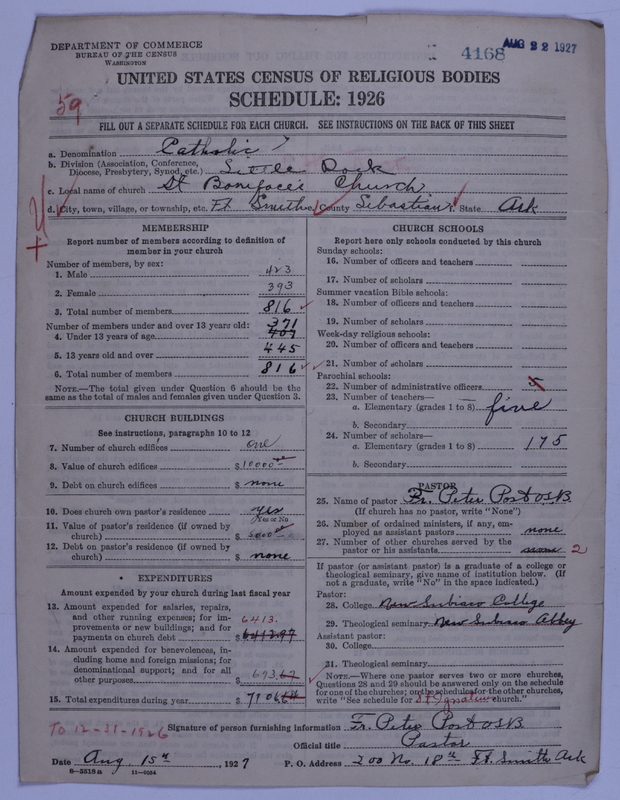 DEPARTMENT OF COMMERCE
BUREAU OF THE CENSUS
WASHINGTON
4168
AUG 22 1927
UNITED STATES CENSUS OF RELIGIOUS BODIES
SCHEDULE: 1926
59
FILL OUT A SEPARATE SCHEDULE FOR EACH CHURCH. SEE INSTRUCTIONS ON THE BACK OF THIS SHEET
a. Denomination Catholic
b. Division (Association, Conference, Diocese, Presbytery, Synod, etc.) Little Rock
c. Local name of church St Boniface's Church
d. City, town, village, or township, etc. Ft Smith County Sebastian State Ark
MEMBERSHIP
Report number of members according to definition of member in your church
Number of members, by sex:
1. Male 423
2. Female 393
3. Total number of members 816
Number of members under and over 13 years old: 371
4. Under 13 years of age 407
5. 13 years old and over 445
6. Total number of members 816
NOTE.—The total given under Question 6 should be the same as the total of males and females given under Question 3.
CHURCH BUILDINGS
See instructions, paragraphs 10 to 12
7. Number of church edifices one
8. Value of church edifices $ 10000
9. Debt on church edifices $ none
10. Does church own pastor's residence yes
Yes or No
11. Value of pastor's residence (if owned by church) $ 5000
12. Debt on pastor's residence (if owned by church) $ none
EXPENDITURES
Amount expended by your church during last fiscal year
13. Amount expended for salaries, repairs, and other running expenses; for improvements or new buildings; and for payments on church debt 6413. $ 6412.97
14. Amount expended for benevolences, including home and foreign missions; for denominational support; and for all other purposes $ 693.67
15. Total expenditures during year $ 7106.64
CHURCH SCHOOLS
Report here only schools conducted by this church
Sunday schools:
16. Number of officers and teachers
17. Number of scholars
Summer vacation Bible schools:
18. Number of officers and teachers
19. Number of scholars
Week-day religious schools:
20. Number of officers and teachers
21. Number of scholars
Parochial schools:
22. Number of administrative officers 5
23. Number of teachers—
a. Elementary (grades 1 to 8) five
b. Secondary
24. Number of scholars—
a. Elementary (grades 1 to 8) 175
b. Secondary
PASTOR
25. Name of pastor Fr. Peter Post OSB.
(If church has no pastor, write "None")
26. Number of ordained ministers, if any, employed as assistant pastors none
27. Number of other churches served by the pastor or his assistants none 2
If pastor (or assistant pastor) is a graduate of a college or theological seminary, give name of institution below. (If not a graduate, write "No" in the space indicated.)
Pastor:
28. College New Subiaco College
29. Theological seminary New Subiaco Abbey
Assistant pastor:
30. College
31. Theological seminary
NOTE.—Where one pastor serves two or more churches, Questions 28 and 29 should be answered only on the schedule for one of the churches; on the schedules for the other churches, write "See schedule for St Ignatius church."
TO 12-31-1926
Signature of person furnishing information Fr. Peter Post OSB
Official title Pastor
Date Aug 15th, 1927
P. O. Address 200 No. 18th Ft. Smith Ark
8—5518a 11—9054